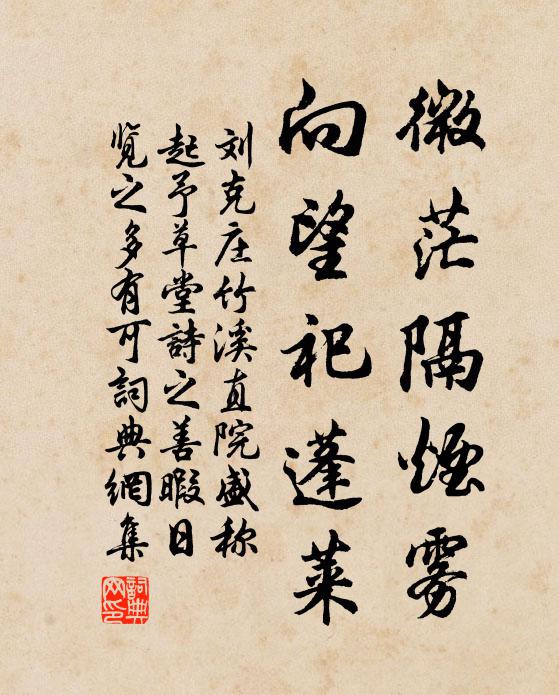 微茫隔煙雾
向望祀蓬莱
刘克庄竹溪直院盛称
起予草堂詩之善暇日
览之多有可詞典網集
詞典網印